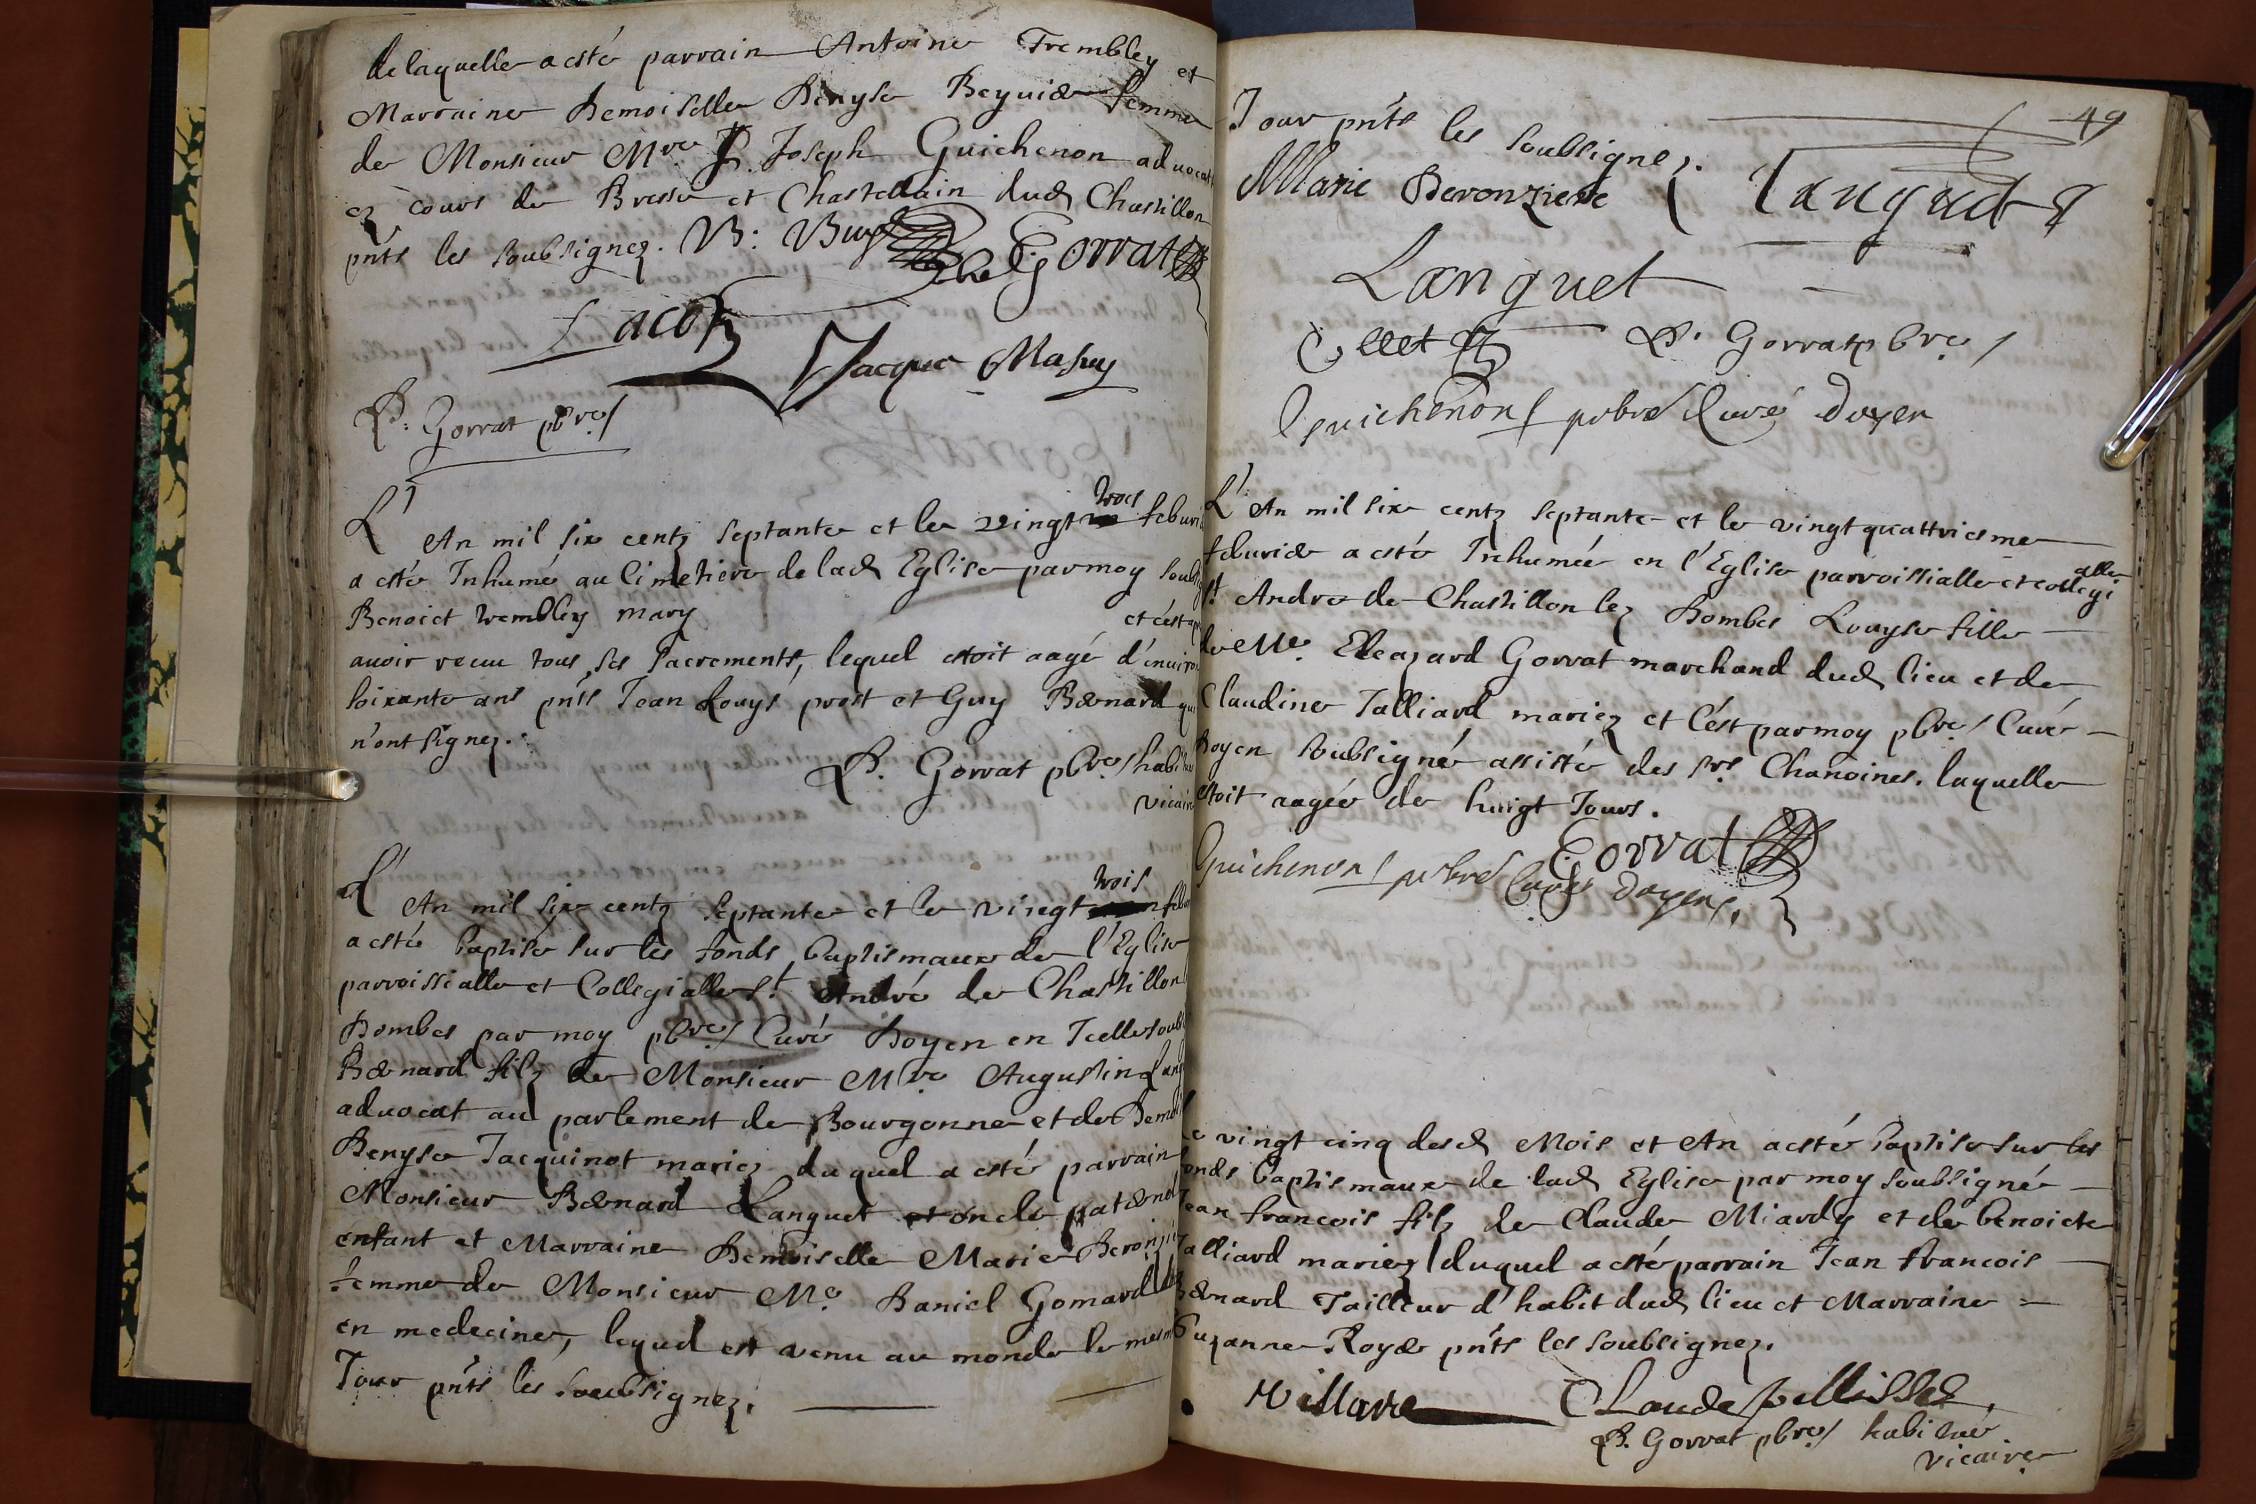 de laquelle a esté parrain Antoine Trembley et
Marraine Demoiselle Denyse Beyvier femme
de Monsieur Mre P. Joseph Guichenon advocat
ez cours de Bresse et Chastellain dud Chastillon
pnts les soubsignez. B: Buy Gorrat
Lacoz
Jacque Masuy
P. Gorrat pbre
L'An mil six centz septante et le vingt trois febvri
a esté Inhumé au Cimetiere de lad Eglise par moy soubsig
Benoict trembley mary et c'est ap
avoir receu tous ses sacrements, lequel estoit aagé d'enviro
soixante ans pnts Jean Louys prost et Guy Bernard qui
n'ont signez.
P. Gorrat pbre habitué
vicaire
L'An mil six centz septante et le vingt trois feb
a esté baptisé sur les fonds baptismaux de l'Eglise
parroissialle et Collegialle St André de Chastillon
Dombes par moy pbre Curé Doyen en Icelle soubs
Bernard filz de Monsieur Mre Augustin Lang
advocat au parlement de Bourgonne et de Demoi
Denyse Jacquinot mariez duquel a esté parrain
Monsieur Bernard Languet oncle paternel
enfant et Marraine Demoiselle Marie Deronzie
femme de Monsieur Me Daniel Gomard
en medecine, lequel est venu au monde le mesm
Jour pnts les soubsignez.
49
Jour pnts les soubsignez.
Marie Deronziere Languet
Languet
Collet P. Gorrat pbre
Guichenon pbre Curé doyen
L'An mil six centz septante et le vingt quattriesme
febvrier a esté Inhumée en l'Eglise parroissialle et collegialle
St Andre de Chastillon lez Dombes Louyse fille
de Me. Eleazard Gorrat marchand dud lieu et de
Claudine Talliard mariez et c'est par moy pbre Curé
Doyen soubsigné assisté des srs Chanoines. laquelle
estoit aagée de huigt Jours.
Gorrat
Guichenon pbre Curé doyen.
Le vingt cinq desd Mois et An a esté baptisé sur les
fonds baptismaux de lad Eglise par moy soubsigné
Jean francois filz de Claude Miardy et de benoicte
Talliard mariez duquel a esté parrain Jean francois
Bernard Tailleur d'habit dud lieu et Marraine
Suzanne Royer pnts les soubsignez.
Villare Claude pellisset,
P. Gorrat pbre habitué
vicaire